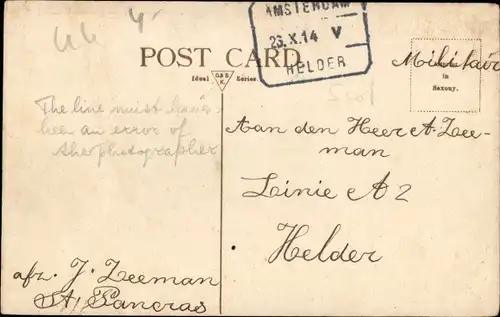 AMSTERDAM
23.X.14 V
HELDER
POST CARD
Ideal
G&S
K.
Series.
Militair
in
Saxony.
The line must have
been an error of
the photographer
Aan den Heer A. Zee-
man
Linie A 2
Helder
afz. J. Zeeman
St. Pancras